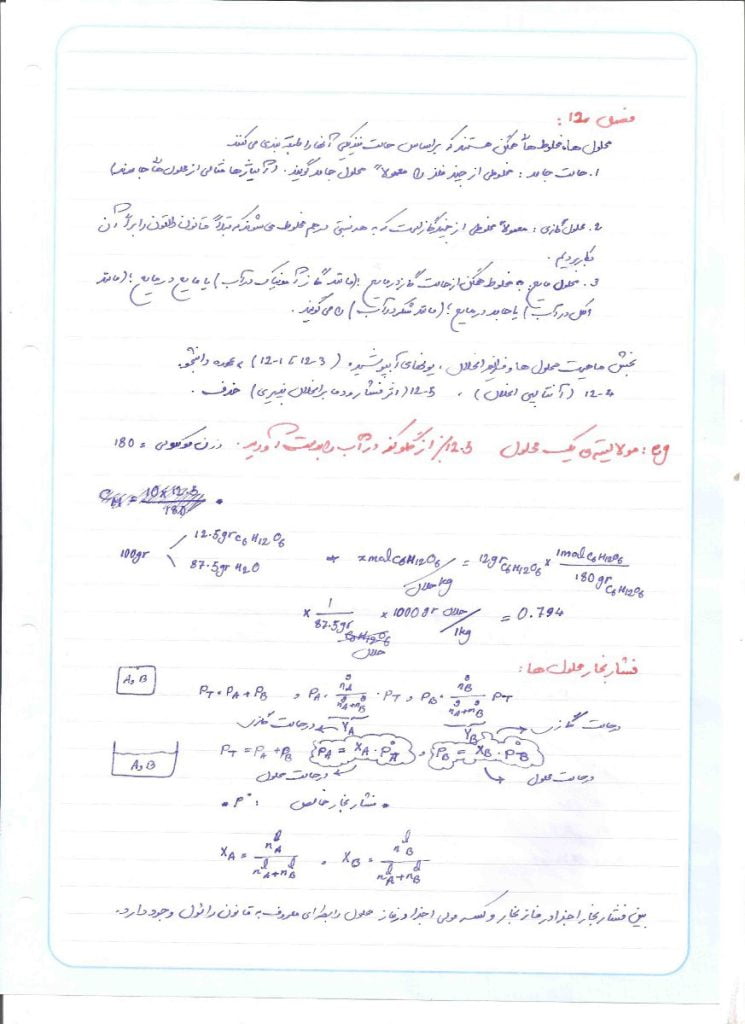 فصل 12 :
محلول ها، مخلوط های همگن هستند که براساس حالت فیزیکی آنها را طبقه بندی می کنند.
1. حالت جامد : مخلوطی از چند فلز را معمولاً محلول جامد گویند. (آلیاژها مثالی از محلول های جامدند)
2. محلول گازی : معمولاً مخلوطی از چند گاز است که به هر نسبتی در هم مخلوط می شوند که قبلاً قانون دالتون را برای آن
بکار بردیم.
3. محلول مایع به مخلوط همگن از حالت گاز در مایع ؛ (مانند گاز در آب) یا مایع در مایع ؛ (مانند
الکل در آب) یا جامد در مایع ؛ (مانند شکر در آب) را می گویند.
بخش ماهیت محلول ها و فرایند انحلال ، یونهای آبپوشیده (12-1 تا 12-3) به عهده دانشجو.
12-4 (آنتالپی انحلال) ، 12-5 (اثر فشار و دما بر انحلال پذیری) حذف .
eg : مولالیته ی یک محلول 12.5% از گلوکز در آب را بدست آورید. وزن مولکولی = 180
CM = 10×12.5 / 180
100gr 12.5gr C6H12O6
87.5gr H2O
x mol C6H12O6 / kg حلال = 12gr C6H12O6 × 1mol C6H12O6 / 180 gr C6H12O6
× 1 / 87.5gr حلال × 1000gr حلال / 1kg = 0.794
فشار بخار محلول ها :
A,B PT = PA + PB , PA = n^g_A / n^g_A+n^g_B · PT , PB = n^g_B / n^g_A+n^g_B PT
YA در حالت گازی YB در حالت گازی
A,B PT = PA + PB PA = XA · P°A , PB = XB · P°B
در حالت محلول در حالت محلول
• فشار بخار خالص : P° •
XA = n^l_A / n^l_A+n^l_B , XB = n^l_B / n^l_A+n^l_B
بین فشار بخار اجزا در فاز بخار و کسر مولی اجزا در فاز محلول رابطه ای معروف به قانون رائول وجود دارد.